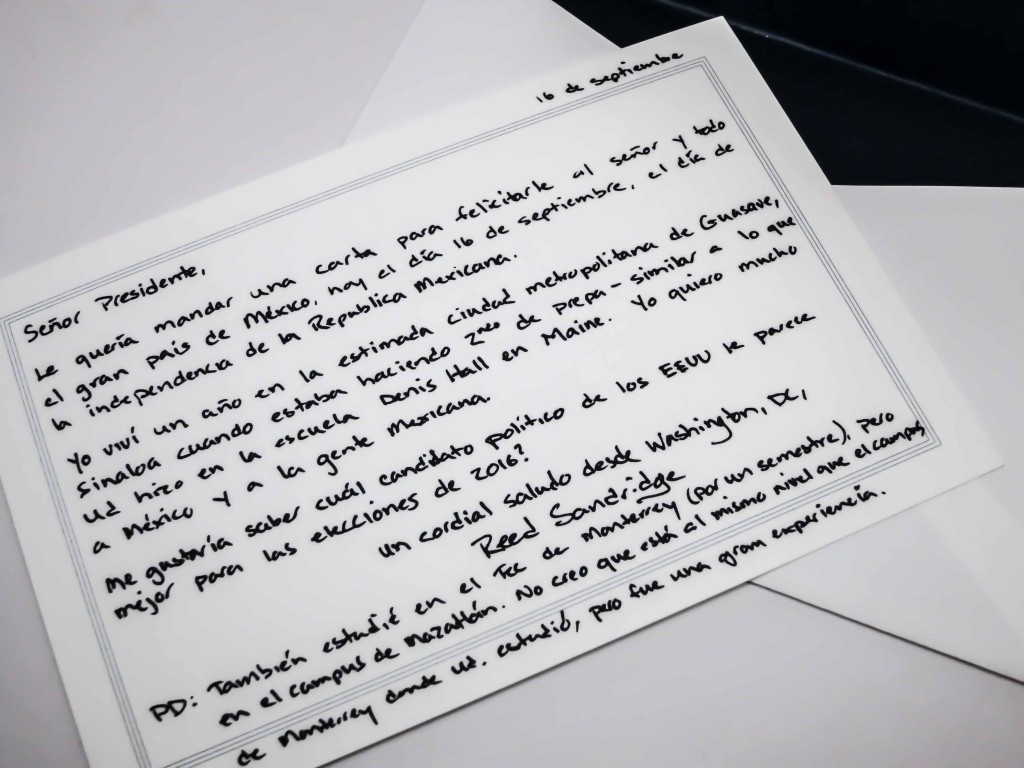 16 de septiembre
Señor Presidente,
Le quería mandar una carta para felicitarle al señor y todo
el gran país de México, hoy el día 16 de septiembre, el día de
la independencia de la Republica Mexicana.
Yo viví un año en la estimada ciudad metropolitana de Guasave,
Sinaloa cuando estaba haciendo 2neo de prepa - similar a lo que
Ud hizo en la escuela Denis Hall en Maine. Yo quiero mucho
a México y a la gente Mexicana.
Me gustaría saber cuál candidato político de los EEUU le parece
mejor para las elecciones de 2016?
Un cordial saludo desde Washington, DC,
Reed Sandridge
PD: También estudié en el Tec de Monterrey (por un semestre), pero
en el campus de Mazatlán. No creo que está al mismo nivel que el campus
de Monterrey donde Ud. estudió, pero fue una gram experiencia.